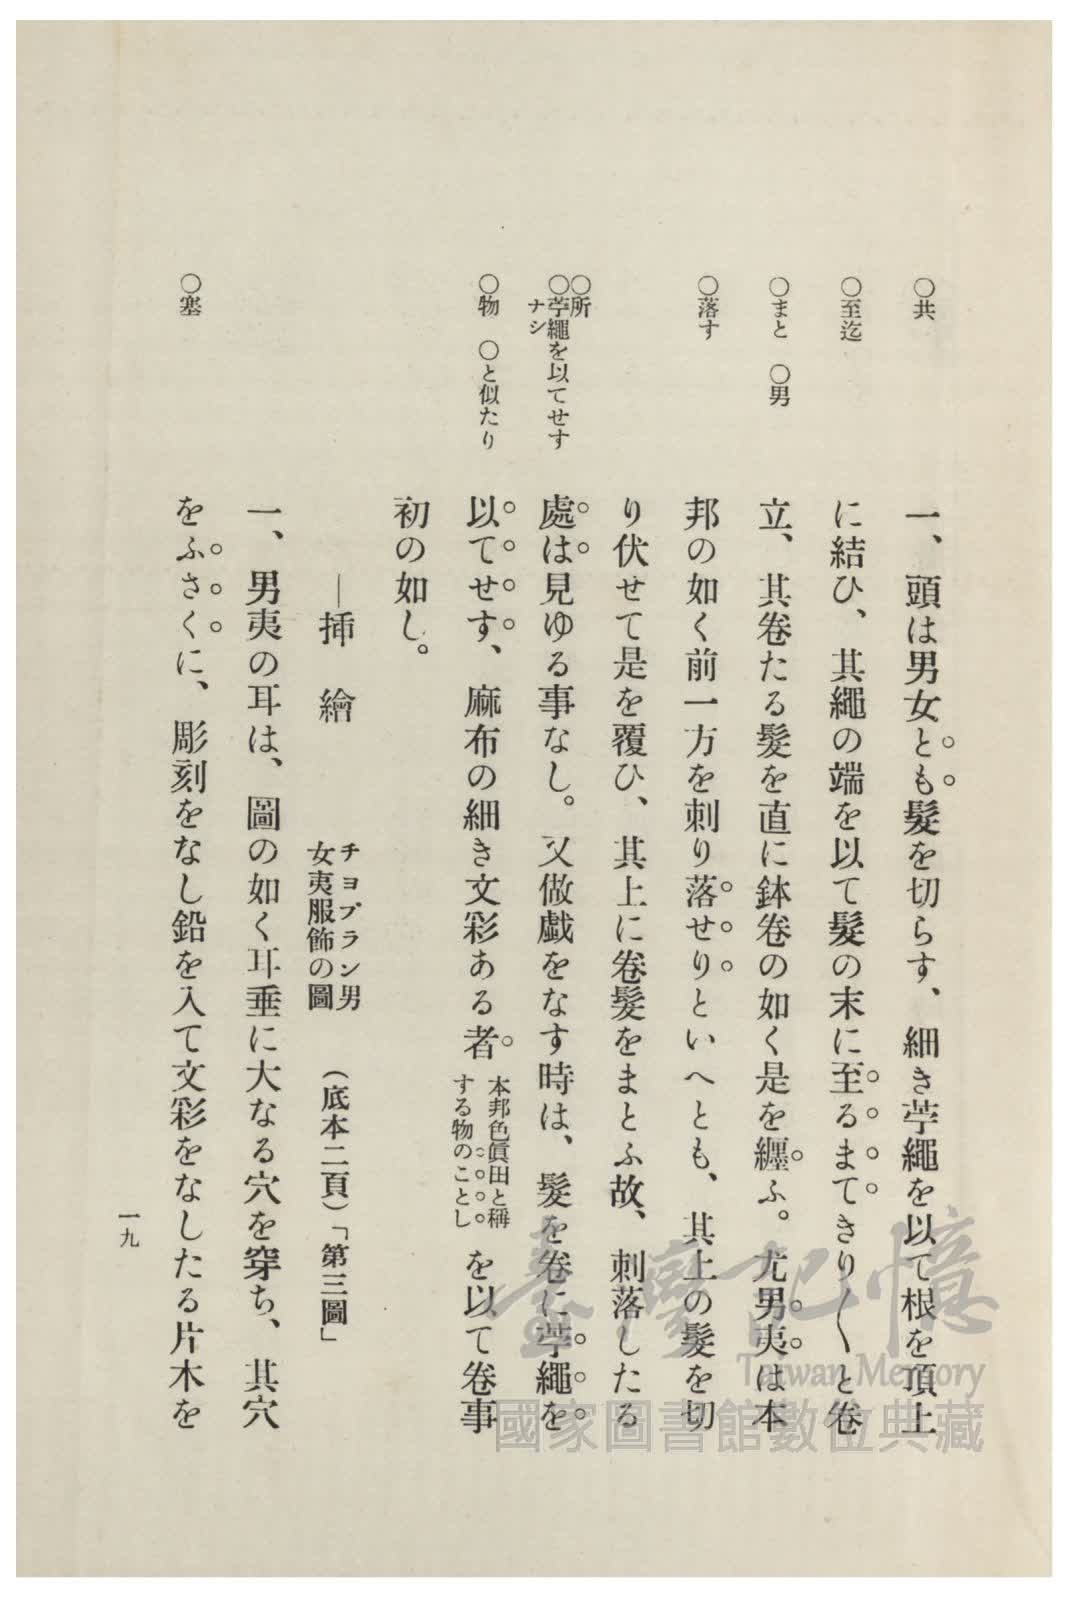 ○共
○至迄
○まと　○男
○落す
○所
○苧繩を以てせす
ナシ
○物　○と似たり
○塞
一、頭は男女とも髮を切らす、細き苧繩を以て根を頂上
に結ひ、其繩の端を以て髮の末に至るまてきり〱と卷
立、其卷たる髮を直に鉢卷の如く是を纒ふ。尤男夷は本
邦の如く前一方を刺り落せりといへとも、其上の髮を切
り伏せて是を覆ひ、其上に卷髮をまとふ故、刺落したる
處は見ゆる事なし。又倣戲をなす時は、髮を卷に苧繩を
以てせす、麻布の細き文彩ある者本邦色眞田と稱する物のことしを以て卷事
初の如し。
―挿　繪　チョプラン男女夷服飾の圖　（底本二頁）「第三圖」
一、男夷の耳は、圖の如く耳垂に大なる穴を穿ち、其穴
をふさくに、彫刻をなし鉛を入て文彩をなしたる片木を
一九
臺灣記憶
Taiwan Memory
國家圖書館數位典藏